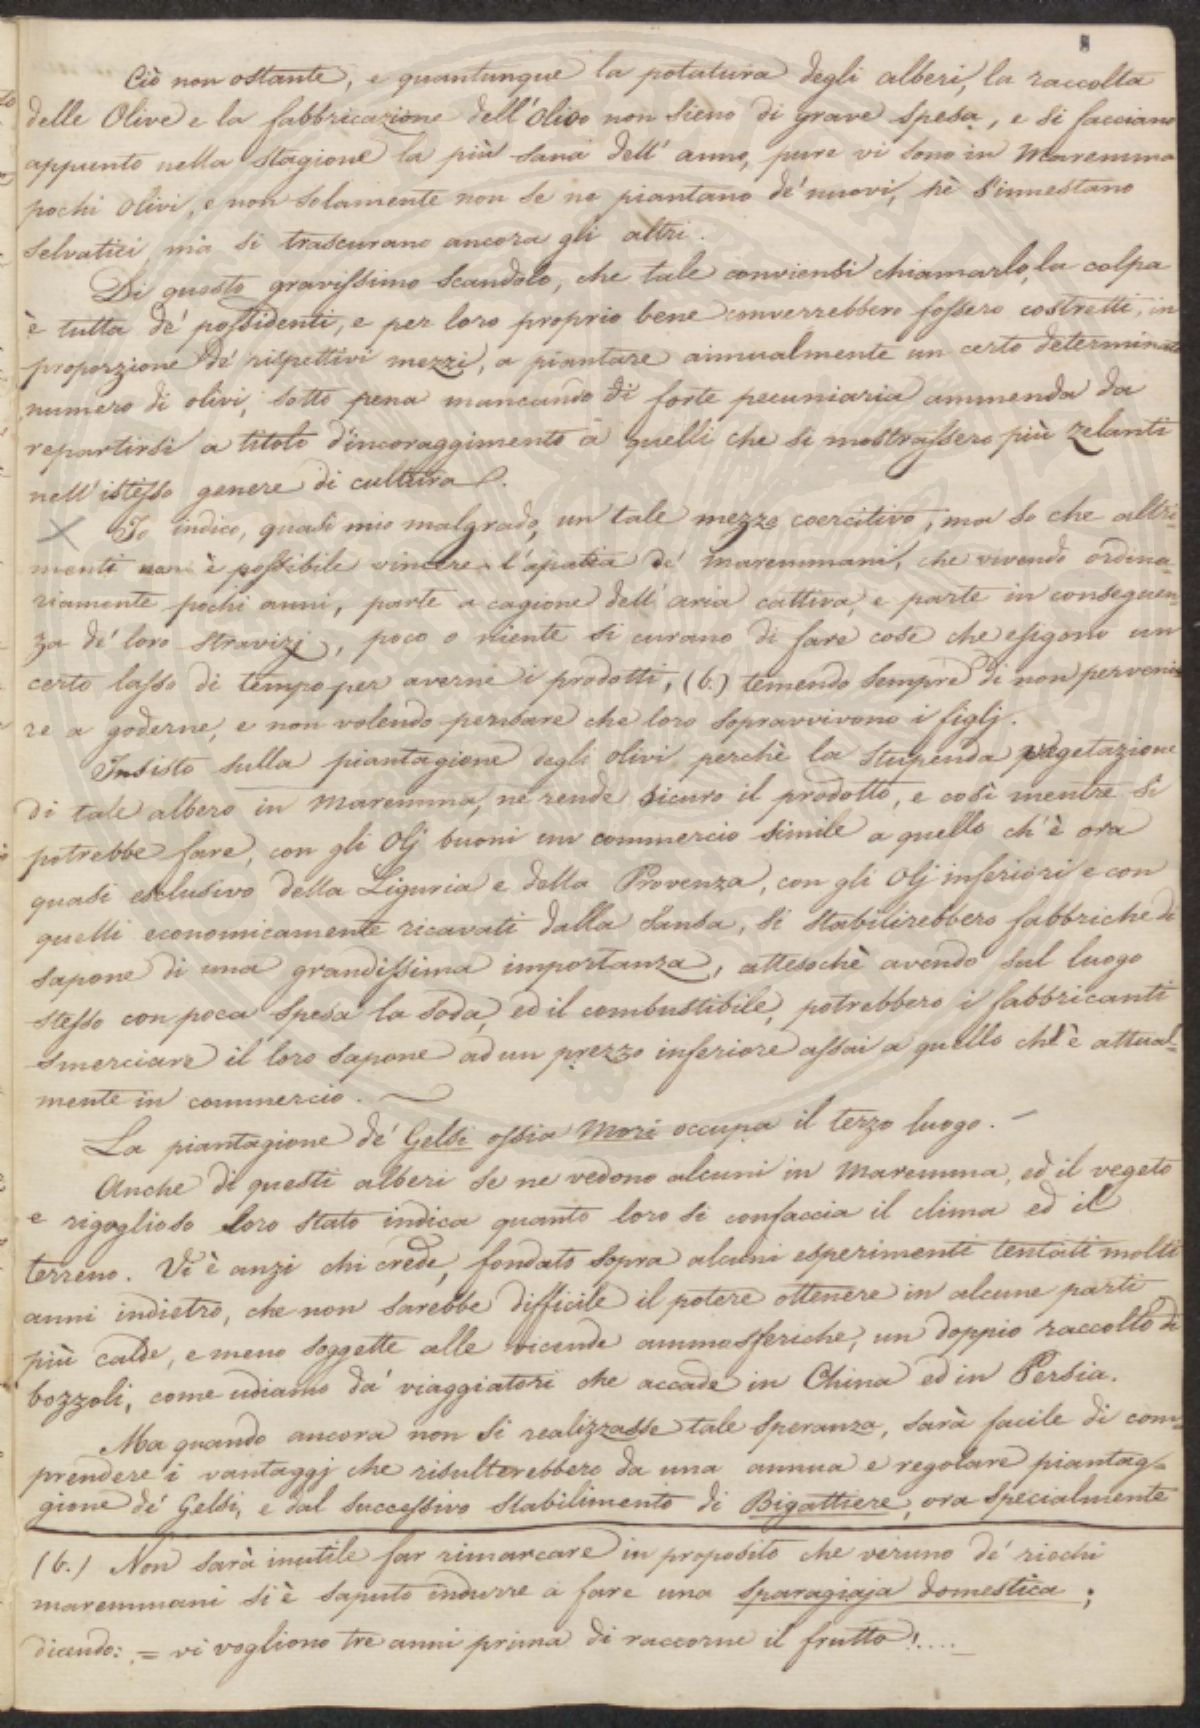 8
Ciò non ostante, e quantunque la potatura degli alberi, la raccolta
delle Olive e la fabbricazione dell'Olio non sieno di grave spesa, e si facciano
appunto nella stagione la più sana dell'anno, pure vi sono in Maremma
pochi Olivi, e non solamente non se ne piantano de' nuovi, nè s'innestano
selvatici, ma si trascurano ancora gli altri.
Di questo gravissimo scandolo, che tale conviensi chiamarlo, la colpa
è tutta de' possidenti, e per loro proprio bene converrebbero fossero costretti, in
proporzione de' rispettivi mezzi, a piantare annualmente un certo determinato
numero di olivi, sotto pena mancando di forte pecuniaria ammenda da
repartirsi a titolo d'incoraggimento a quelli che si mostrassero più zelanti
nell'istesso genere di cultura.
Io indico, quasi mio malgrado, un tale mezzo coercitivo, ma so che altri-
menti non è possibile vincere l'apatia de' maremmani, che vivendo ordina-
riamente pochi anni, parte a cagione dell'aria cattiva, e parte in conseguen-
za de' loro stravizj, poco o niente si curano di fare cose che esigono un
certo lasso di tempo per averne i prodotti, (6.) temendo sempre di non perveni-
re a goderne, e non volendo pensare che loro sopravvivono i figlj.
Insisto sulla piantagione degli olivi perchè la stupenda vegetazione
di tale albero in Maremma, ne rende sicuro il prodotto, e così mentre si
potrebbe fare, con gli Olj buoni un commercio simile a quello ch'è ora
quasi esclusivo della Liguria e della Provenza, con gli Olj inferiori e con
quelli economicamente ricavati dalla Sansa, si stabilirebbero fabbriche di
sapone di una grandissima importanza, attesochè avendo sul luogo
stesso con poca spesa la soda, ed il combustibile, potrebbero i fabbricanti
smerciare il loro sapone ad un prezzo inferiore assai a quello ch'è attual-
mente in commercio.
La piantagione de' Gelsi ossia Mori occupa il terzo luogo.
Anche di questi alberi se ne vedono alcuni in Maremma, ed il vegeto
e rigoglioso loro stato indica quanto loro si confaccia il clima ed il
terreno. Vi è anzi chi crede, fondato sopra alcuni esperimenti tentati molti
anni indietro, che non sarebbe difficile il potere ottenere in alcune parti
più calde, e meno soggette alle vicende ammosferiche, un doppio raccolto di
bozzoli, come udiamo da' viaggiatori che accade in China ed in Persia.
Ma quando ancora non si realizzasse tale speranza, sarà facile di com-
prendere i vantaggj che risulterebbero da una annua e regolare piantag-
gione de' Gelsi, e dal successivo stabilimento di Bigattiere, ora specialmente
(6.) Non sarà inutile far rimarcare in proposito che veruno de' ricchi
maremmani si è saputo indurre a fare una sparagiaja domestica;
dicendo: = vi vogliono tre anni prima di raccorne il frutto!....